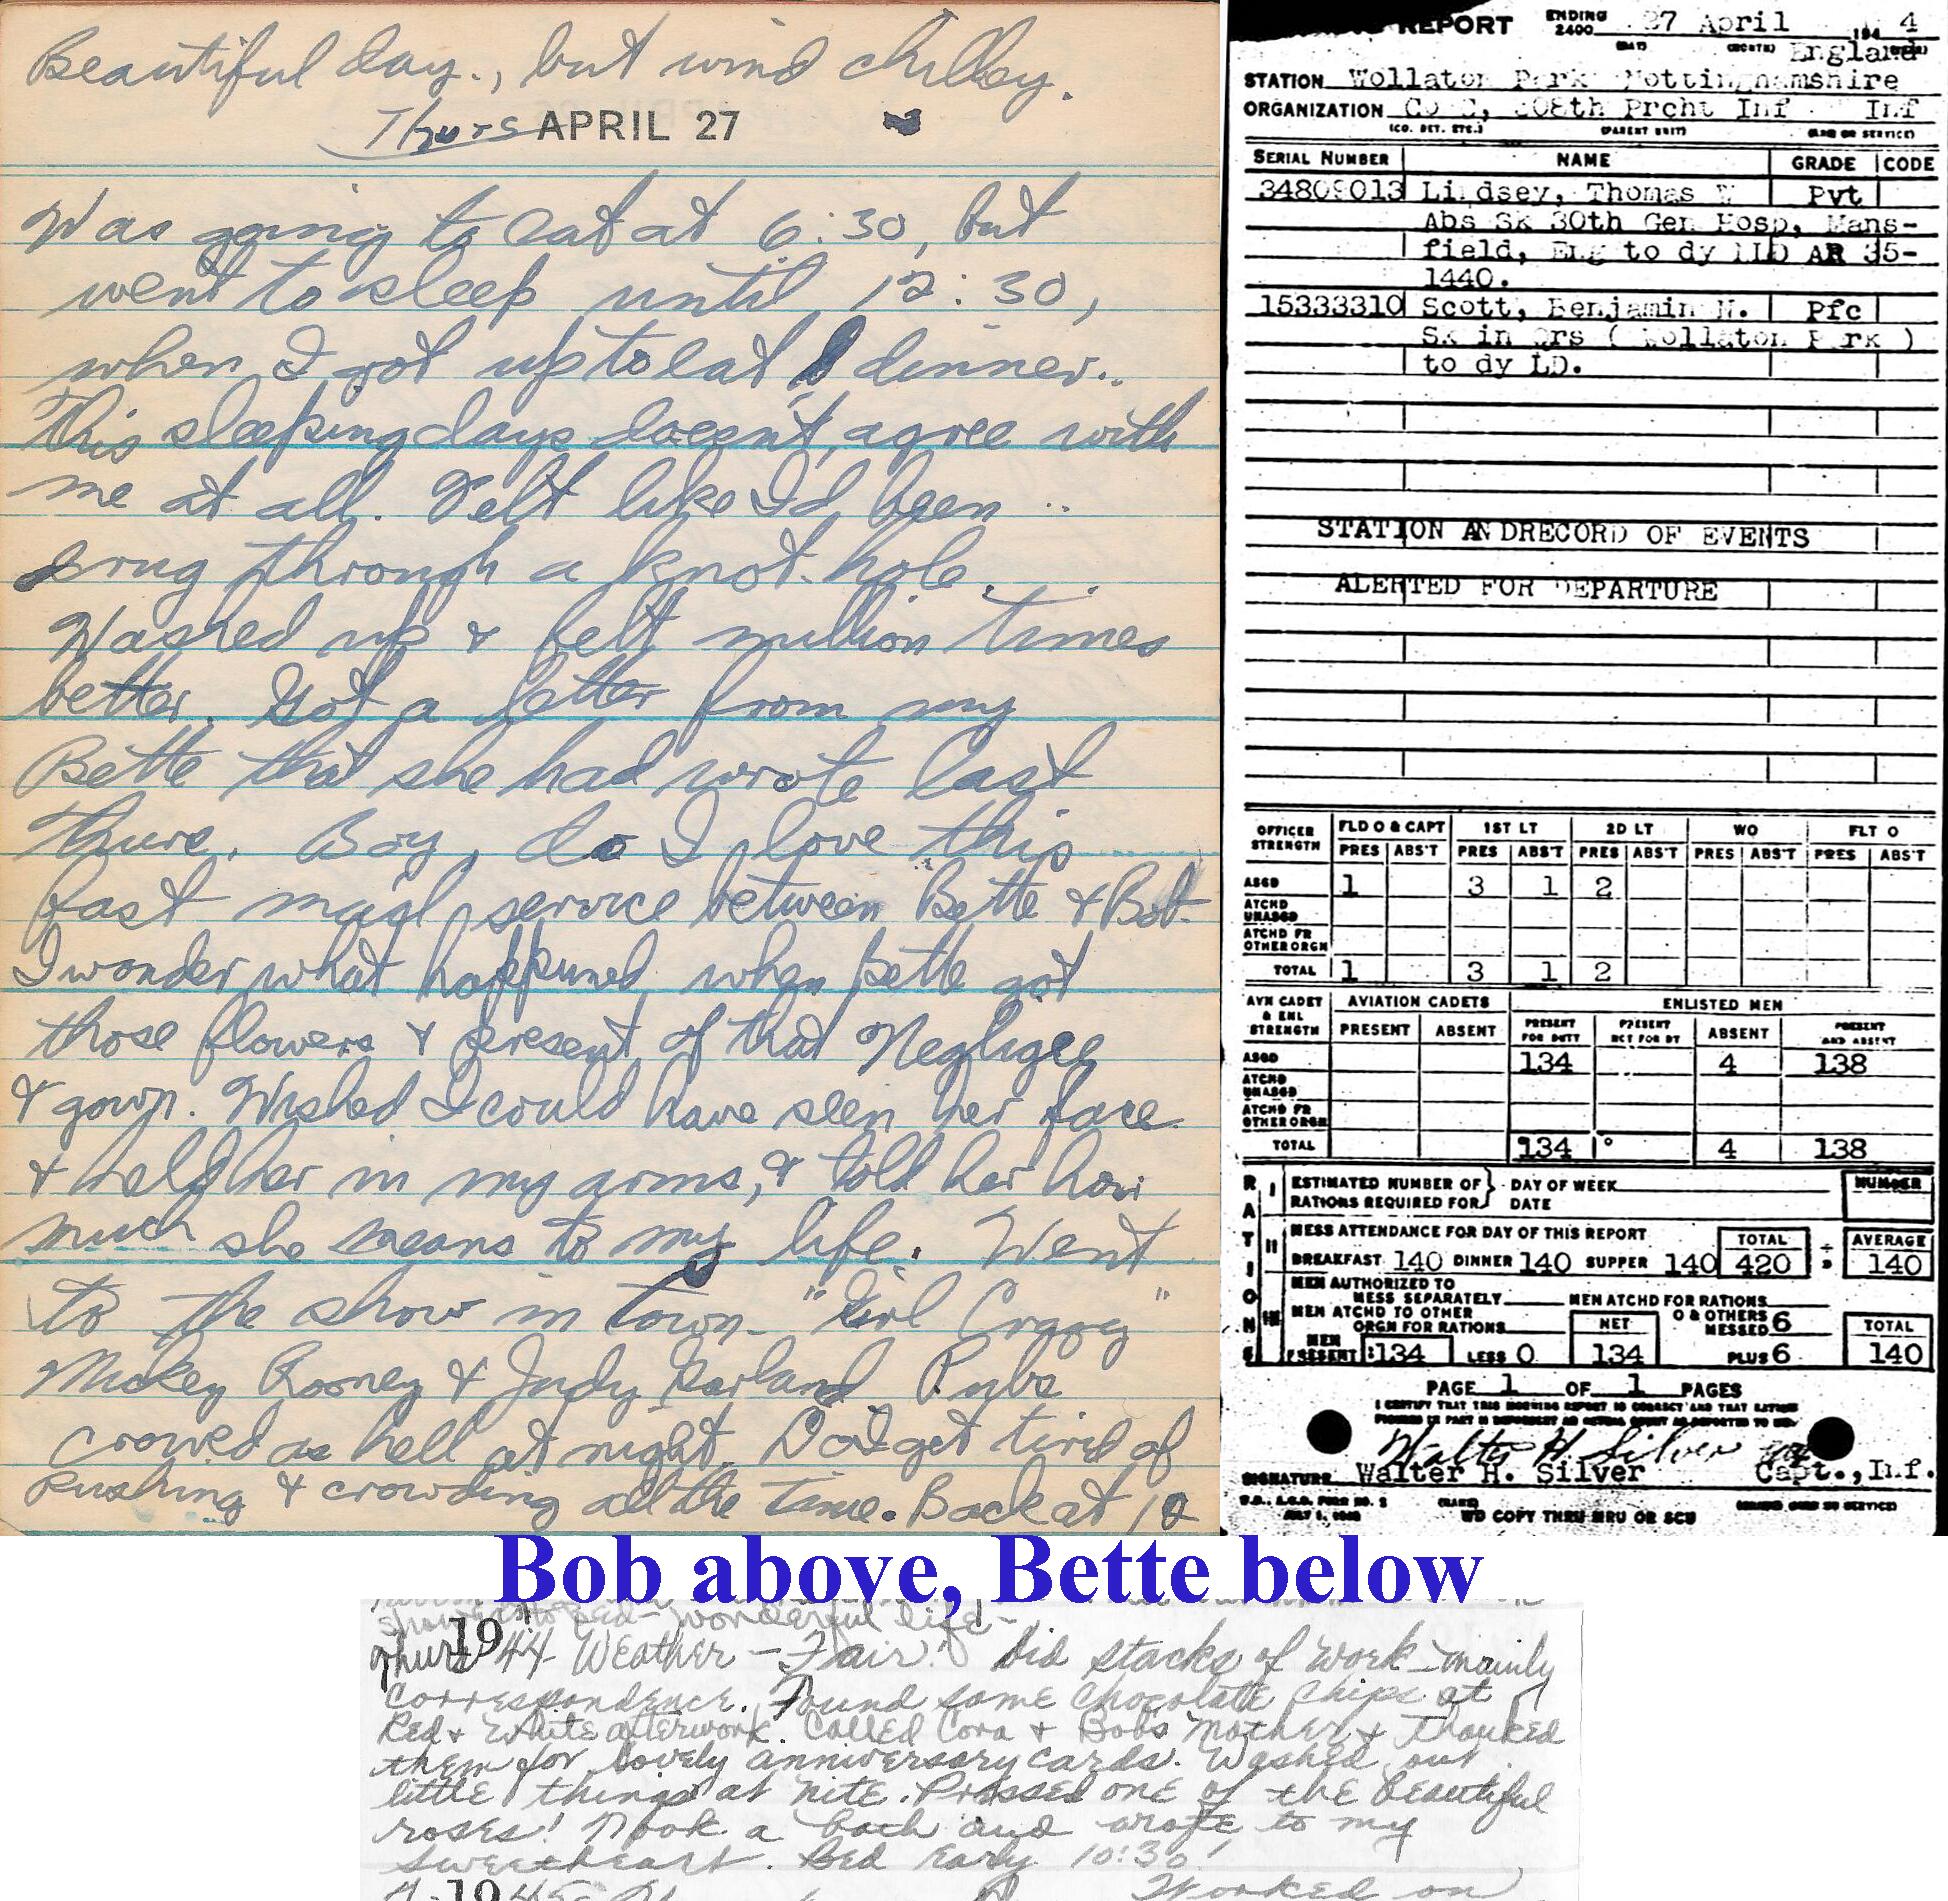 Beautiful day., but wind chilley.
Thurs APRIL 27
Was going to eat at 6:30, but
went to sleep until 12:30,
when I got up to eat dinner..
This sleeping days doesn't, agree with
me at all. Felt like I'd been ..
drug through a knot-hole.
Washed up & felt million times
better. Got a letter from my
Bette that she had wrote last
thurs. Boy, do I love this
fast mail service between Bette & Bob.
I wonder what happened when Bette got
those flowers & present of that Negligee
& gown. Wished I could have seen her face
& held her in my arms, & told her how
much she means to my life. Went
to the show in town- "Girl Crazy"
Mickey Rooney & Judy Garland Pubs
crowed as hell at night. Do I get tired of
pushing & crowding all the time. Back at 12
REPORT ENDING 2400 27 April 194 4
(DAY) (MONTH) England
STATION Wollaton Park Nottinghamshire
ORGANIZATION Co C, 508th Prcht Inf Inf
(CO. DET. ETC.) (PARENT UNIT) (ARM OR SERVICE)
SERIAL NUMBER NAME GRADE CODE
34809013 Lindsey, Thomas W Pvt
Abs Sk 30th Gen Hosp, Mans-
field, Eng to dy NLD AR 35-
1440.
15333310 Scott, Benjamin N. Pfc
Sk in Qrs ( Wollaton Park )
to dy LD.
STATION AND RECORD OF EVENTS
ALERTED FOR DEPARTURE
OFFICER STRENGTH FLD O & CAPT 1ST LT 2D LT WO FLT O
PRES ABS'T PRES ABS'T PRES ABS'T PRES ABS'T PRES ABS'T
ASGD 1 3 1 2
ATCHD UNASGD
ATCHD FR OTHER ORGN
TOTAL 1 3 1 2
AVN CADET & ENL STRENGTH AVIATION CADETS ENLISTED MEN
PRESENT ABSENT PRESENT FOR DUTY PRESENT NOT FOR DY ABSENT PRESENT AND ABSENT
ASGD 134 4 138
ATCHD UNASGD
ATCHD FR OTHER ORGN
TOTAL 134 0 4 138
RATIONS
I ESTIMATED NUMBER OF RATIONS REQUIRED FOR DAY OF WEEK DATE NUMBER
II MESS ATTENDANCE FOR DAY OF THIS REPORT TOTAL AVERAGE
BREAKFAST 140 DINNER 140 SUPPER 140 420 ÷ 3 140
III MEN AUTHORIZED TO MESS SEPARATELY MEN ATCHD FOR RATIONS
MEN ATCHD TO OTHER ORGN FOR RATIONS NET O & OTHERS MESSED 6 TOTAL
MEN PRESENT 134 LESS 0 134 PLUS 6 140
PAGE 1 OF 1 PAGES
I CERTIFY THAT THIS MORNING REPORT IS CORRECT AND THAT
Walter H. Silver
SIGNATURE Walter H. Silver Capt., Inf.
W.D., A.G.O. FORM NO. 1 (NAME) (GRADE AND ARM OR SERVICE)
WD COPY THRU MRU OR SCU
Bob above, Bette below
wonderful life-
Thurs 1944 Weather - Fair! Did stacks of work - mainly
correspondence. Found some chocolate chips at
Red & White after work. Called Cora & Bob's Mother & thanked
them for lovely anniversary cards. Washed out
little things at nite. Pressed one of the beautiful
roses! Took a bath and wrote to my
sweetheart. Bed early 10:30!
1945 Worked on